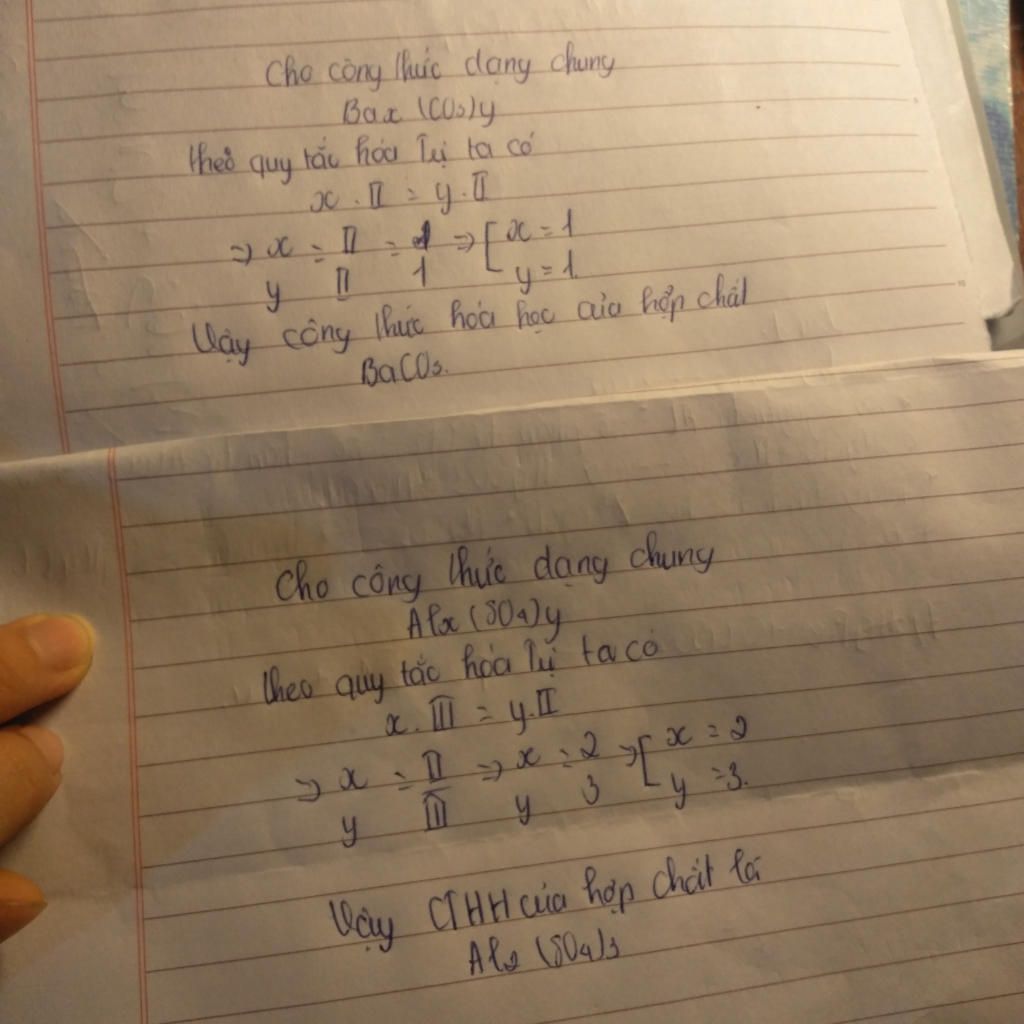 Cho công thức dạng chung
Bax (CO3)y
theo quy tắc hóa trị ta có
x . II = y . II
=> x/y = II/II = 1/1 => [x = 1
y = 1.
Vậy công thức hóa học của hợp chất
BaCO3.
Cho công thức dạng chung
Alx (SO4)y
theo quy tắc hóa trị ta có
x . III = y . II
=> x/y = II/III => x/y = 2/3 => [x = 2
y = 3.
Vậy CTHH của hợp chất là
Al2 (SO4)3